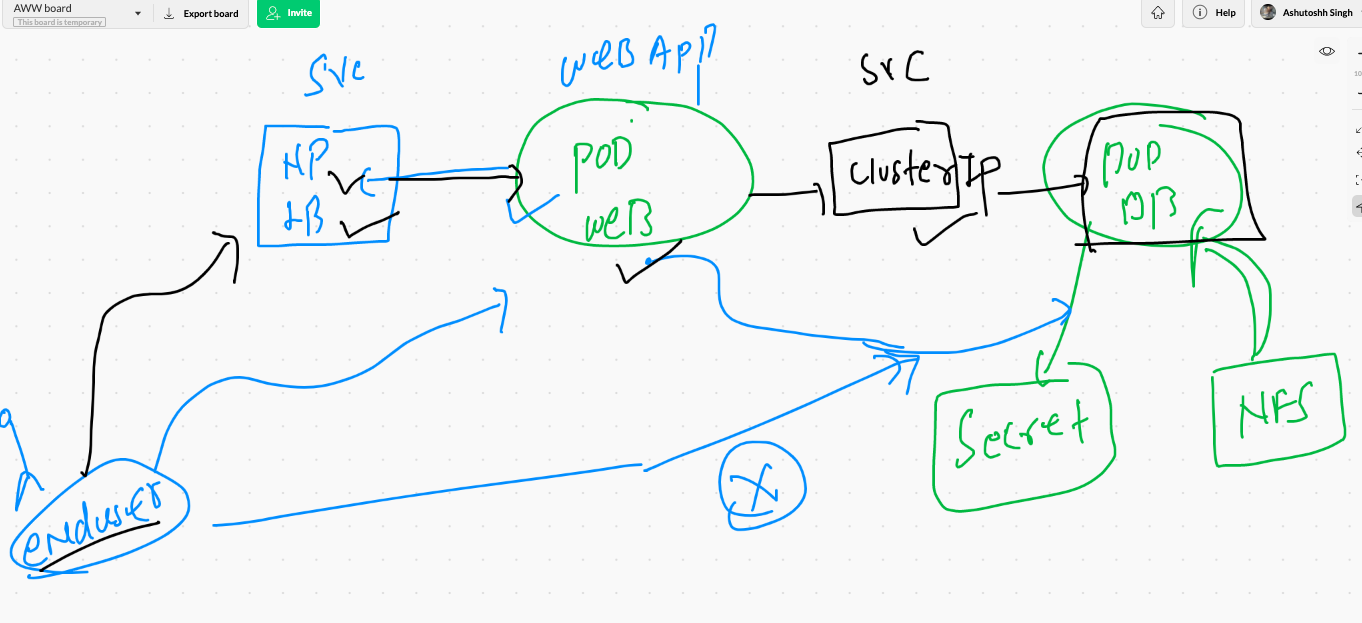 AWW board
This board is temporary
Export board
Invite
Help
Ashutoshh Singh
SVC
WEB App
SrC
NP
LB
POD
WEB
Cluster IP
POD
DB
Secret
NFS
enduser